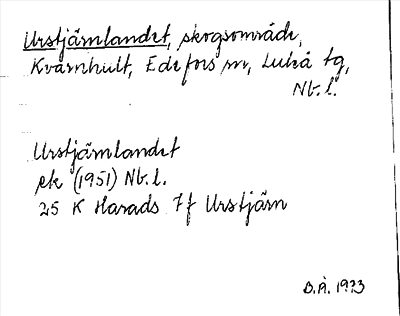 Urstjärnlandet, skogsområde,
Kvarnhult, Edefors sn, Luleå tg,
Nb. l.
Urstjärnlandet
ek (1951) Nb. l.
25 K Harads 7f Urstjärn
B.Å. 1973